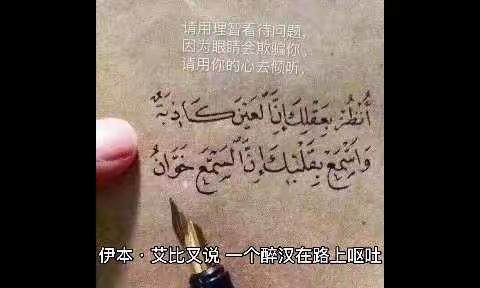 请用理智看待问题，
因为眼睛会欺骗你，
请用你的心去倾听，
أُنْظُرْ بِعَقْلِكَ إِنَّ الْعَيْنَ كَاذِبَةٌ
وَاسْمَعْ بِقَلْبِكَ إِنَّ السَّمْعَ خَوَّانُ
伊本·艾比叉说 一个醉汉在路上呕吐